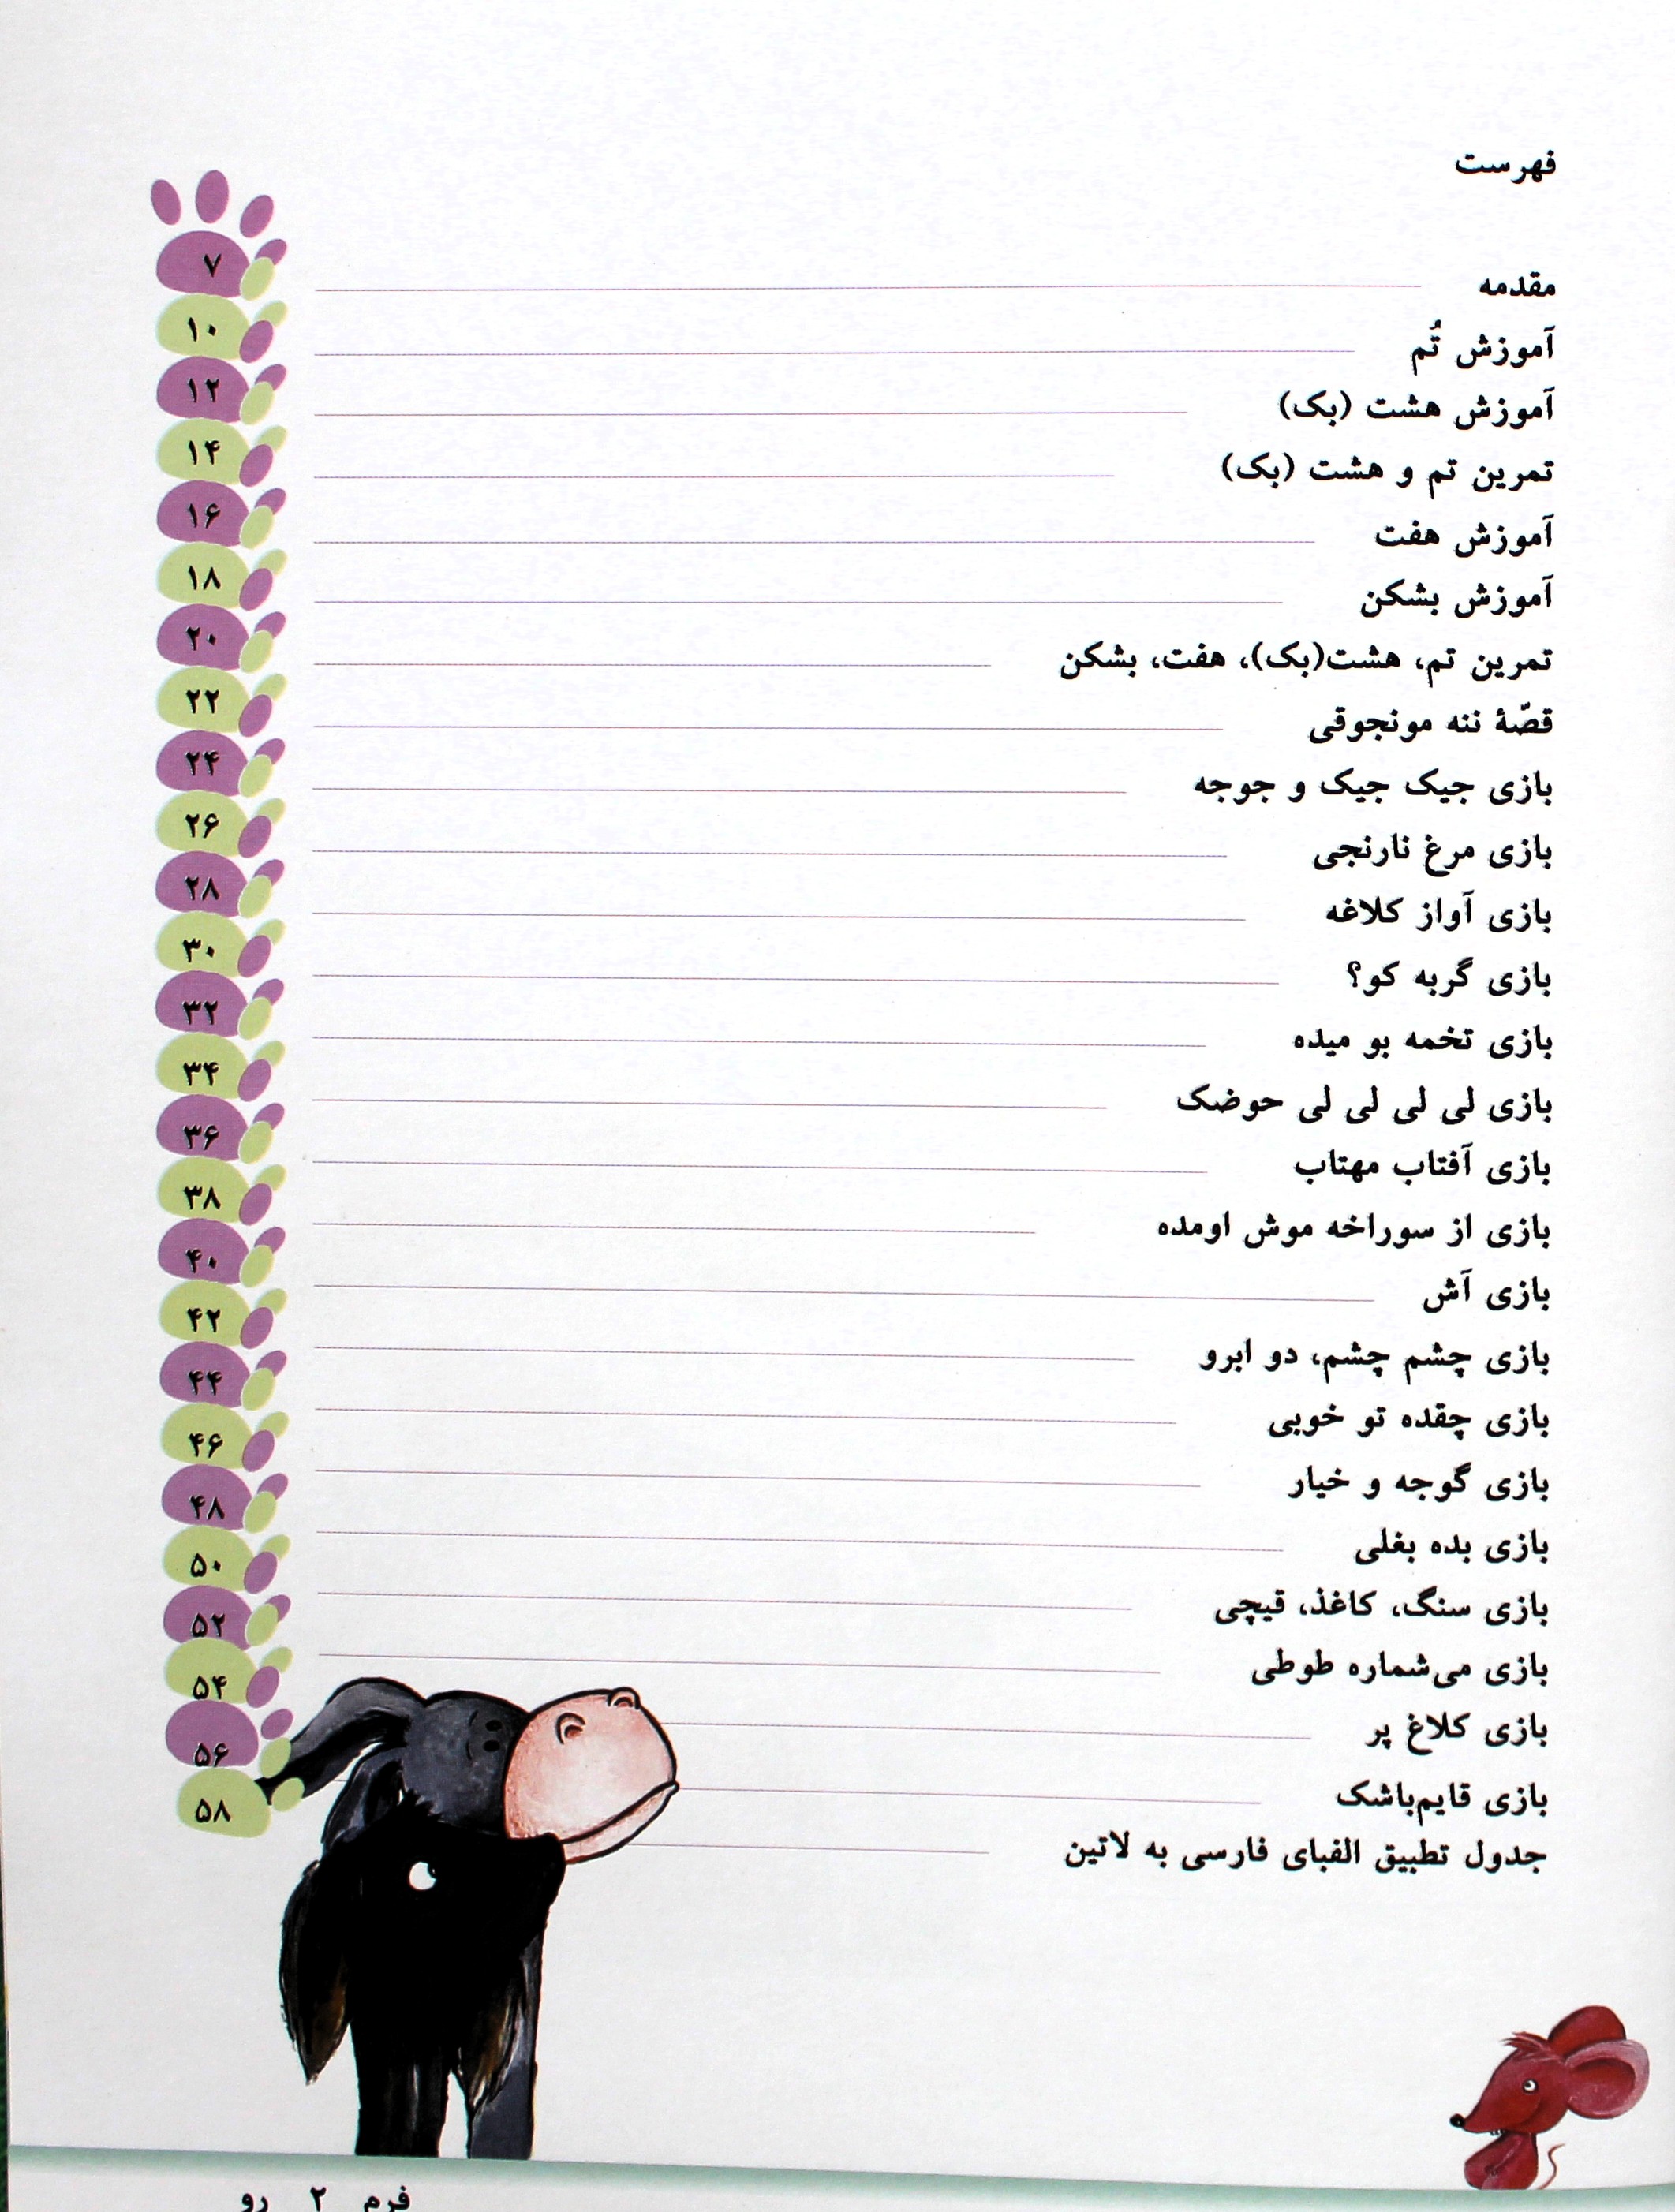 فهرست
مقدمه ۷
آموزش تُم ۱۰
آموزش هشت (بک) ۱۲
تمرین تم و هشت (بک) ۱۴
آموزش هفت ۱۶
آموزش بشکن ۱۸
تمرین تم، هشت(بک)، هفت، بشکن ۲۰
قصّهٔ ننه مونجوقی ۲۲
بازی جیک جیک و جوجه ۲۴
بازی مرغ نارنجی ۲۶
بازی آواز کلاغه ۲۸
بازی گربه کو؟ ۳۰
بازی تخمه بو میده ۳۲
بازی لی لی لی لی حوضک ۳۴
بازی آفتاب مهتاب ۳۶
بازی از سوراخه موش اومده ۳۸
بازی آش ۴۰
بازی چشم چشم، دو ابرو ۴۲
بازی چقده تو خوبی ۴۴
بازی گوجه و خیار ۴۶
بازی بده بغلی ۴۸
بازی سنگ، کاغذ، قیچی ۵۰
بازی می‌شماره طوطی ۵۲
بازی کلاغ پر ۵۴
بازی قایم‌باشک ۵۶
جدول تطبیق الفبای فارسی به لاتین ۵۸
فرم ۲ رو